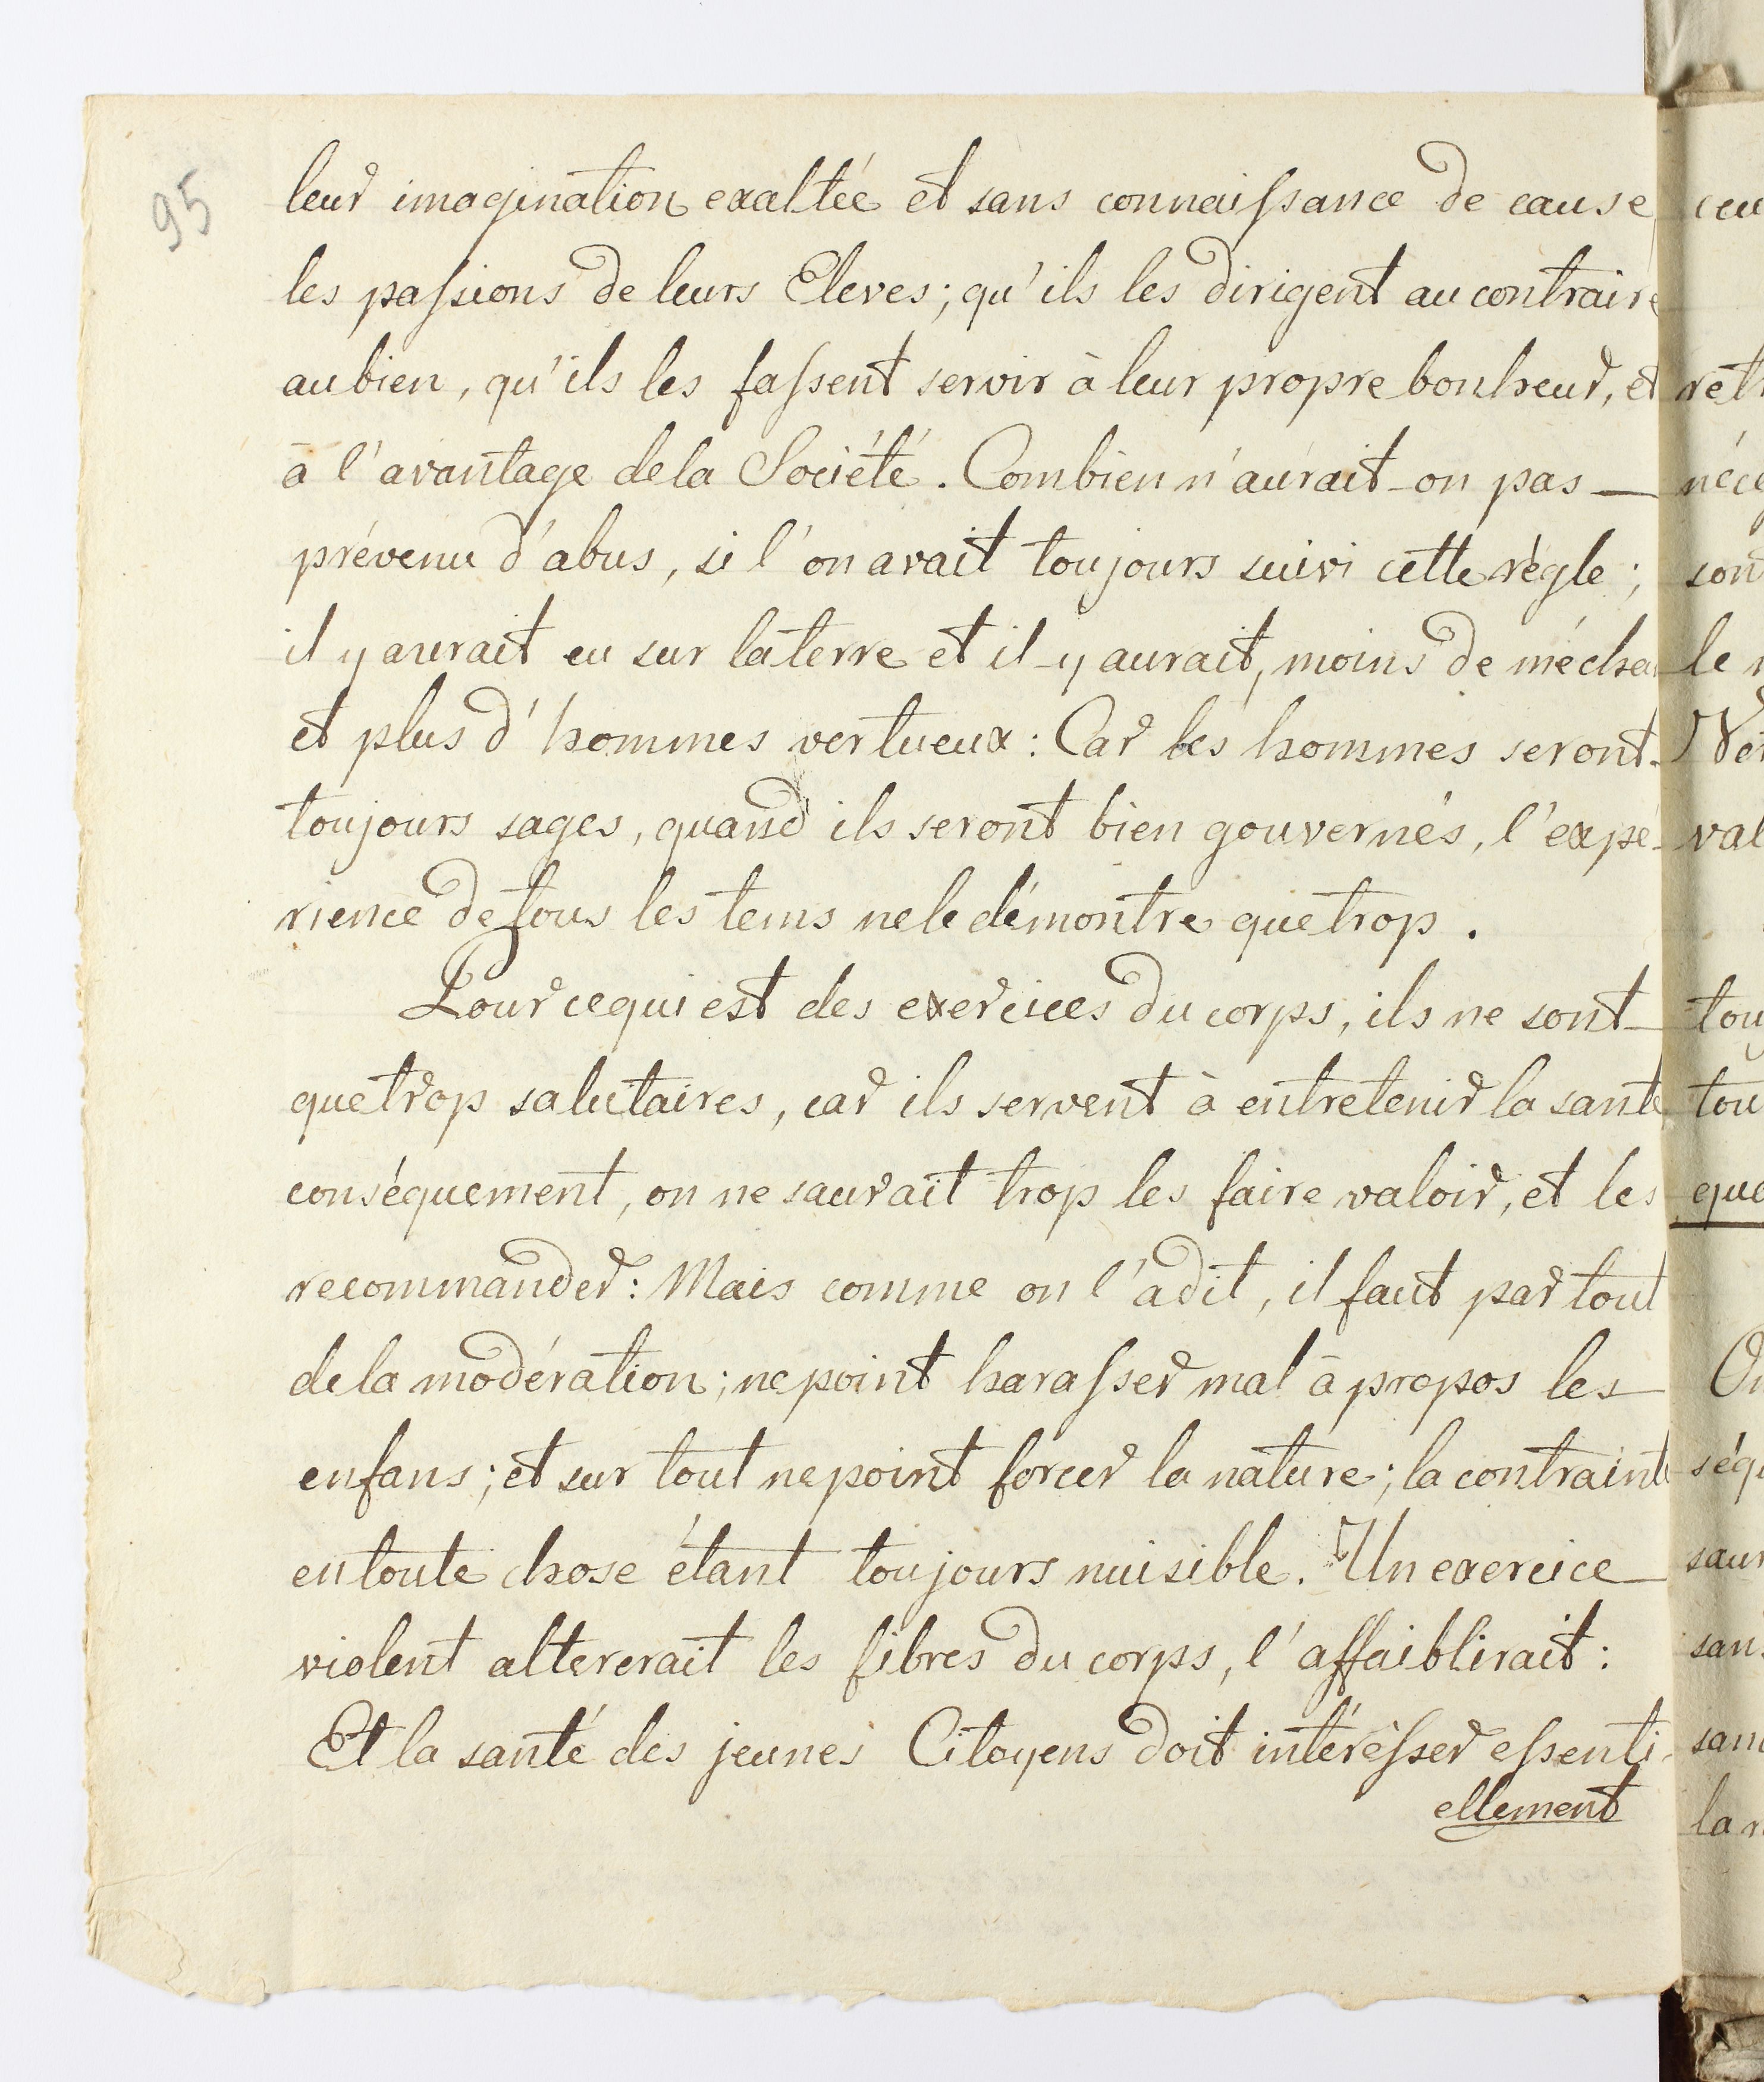 95
leur imagination exaltée et sans connaissance de cause
les passions de leurs Eleves; qu'ils les dirigent au contraire
au bien, qu'ils les fassent servir à leur propre bonheur, et
à l'avantage de la Société. Combien n'aurait-on pas —
prévenu d'abus, si l'on avait toujours suivi cette règle;
il y aurait eu sur la terre et il y aurait, moins de mécha
et plus d'hommes vertueux: Car les hommes seront
toujours sages, quand ils seront bien gouvernés, l'expé-
rience de tous les tems ne le démontre que trop.
Pour ce qui est des exercices du corps, ils ne sont
que trop salutaires, car ils servent à entretenir la santé
conséquement, on ne saurait trop les faire valoir, et les
recommander: Mais comme on l'a dit, il faut par tout
de la modération; ne point harasser mal à propos les
enfans; et sur tout ne point forcer la nature; la contrainte
en toute chose étant toujours nuisible. Un exercice
violent altererait les fibres du corps, l'affaiblirait:
Et la santé des jeunes Citoyens doit intéresser essenti-
ellement